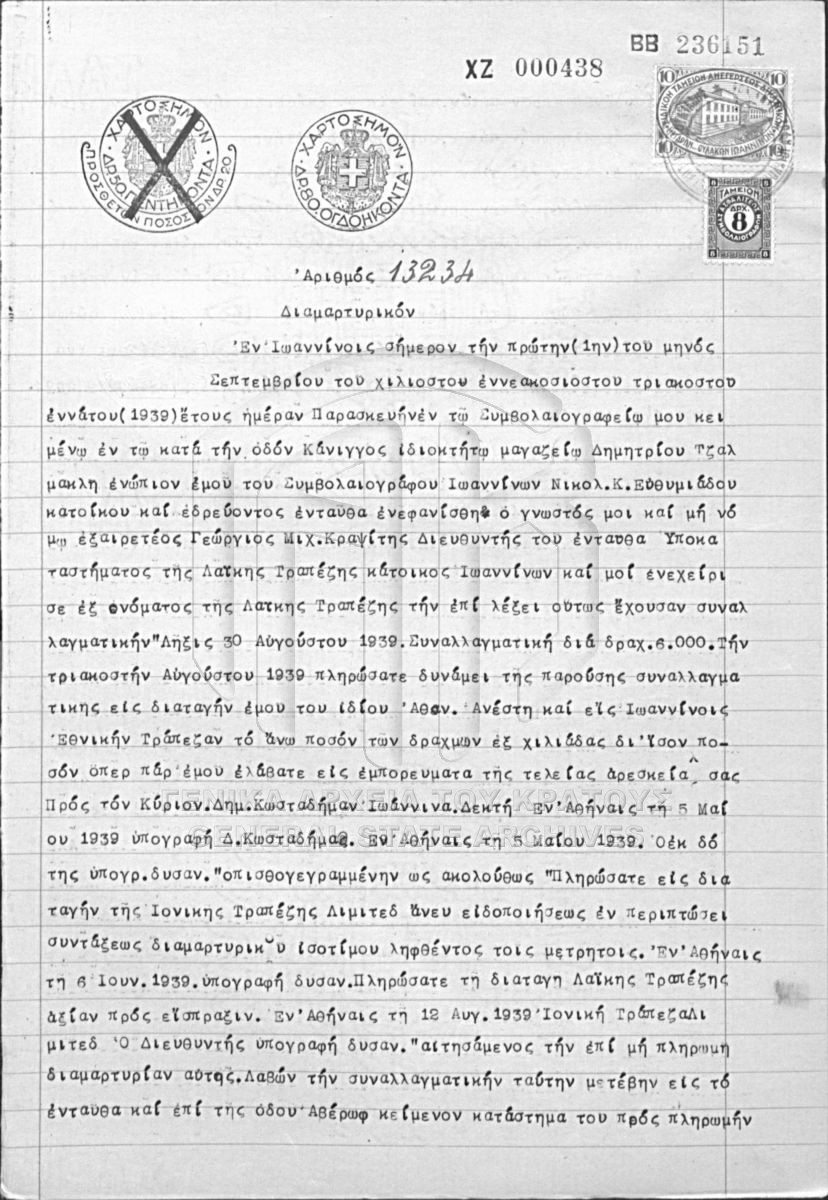 ΒΒ 236151
ΧΖ 000438
ΧΑΡΤΟΣΗΜΟΝ
ΔΡ.50.ΠΕΝΤΗΚΟΝΤΑ
ΠΡΟΣΘΕΤΟΝ ΠΟΣΟΣΤΟΝ ΔΡ.20
ΧΑΡΤΟΣΗΜΟΝ
ΔΡ.80.ΟΓΔΟΗΚΟΝΤΑ
10 10
10 10
ΤΑΜΕΙΟΝ
ΔΡΧ.
8
Ἀριθμός 13234
Διαμαρτυρικόν
Ἐν Ἰωαννίνοις σήμερον τήν πρώτην(1ην)του μηνός
Σεπτεμβρίου του χιλιοστου ἐννεακοσιοστου τριακοστου
ἐννάτου(1939)ἔτους ἡμέραν Παρασκευήνἐν τῳ Συμβολαιογραφείῳ μου κει
μένῳ ἐν τῳ κατά τήν ὁδόν Κάνιγγος ἰδιοκτήτῳ μαγαζείῳ Δημητρίου Τζαλ
μακλη ἐνώπιον ἐμου του Συμβολαιογράφου Ἰωαννίνων Νικολ.Κ.Εὐθυμιάδου
κατοίκου καί ἑδρεύοντος ἐνταυθα ἐνεφανίσθη ὁ γνωστός μοι καί μή νό
μῳ ἐξαιρετέος Γεώργιος Μιχ.Κραψίτης Διευθυντής του ἐνταυθα Ὑποκα
ταστήματος τῆς Λαϊκης Τραπέζης κάτοικος Ἰωαννίνων καί μοί ἐνεχείρι
σε ἐξ ὀνόματος τῆς Λαϊκης Τραπέζης τήν ἐπί λέξει οὕτως ἔχουσαν συναλ
λαγματικήν"Λῆξις 30 Αὐγούστου 1939.Συναλλαγματική διά δραχ.6.000.Τήν
τριακοστήν Αὐγούστου 1939 πληρώσατε δυνάμει τῆς παρούσης συναλλαγμα
τικης εἰς διαταγήν ἐμου του ἰδίου Ἀθαν. Ἀνέστη καί εἰς Ἰωαννίνοις
Ἐθνικήν Τράπεζαν τό ἄνω ποσόν των δραχμων ἐξ χιλιάδας δι'ἴσον πο-
σόν ὅπερ πάρ'ἐμου ἐλάβατε εἰς ἐμπορευματα τῆς τελείας ἀρεσκείας σας
Πρός τόν Κύριον.Δημ.Κωσταδήμαν Ἰωάννινα.Δεκτή Ἐν Ἀθήναις τῃ 5 Μαΐ
ου 1939 ὑπογραφή Δ.Κωσταδήμας. Ἐν Ἀθήναις τῃ 5 Μαΐου 1939. Ὁἐκ δό
της ὑπογρ.δυσαν."ὀπισθογεγραμμένην ως ἀκολούθως "Πληρώσατε εἰς δια
ταγήν τῆς Ἰονικης Τραπέζης Λίμιτεδ ἄνευ εἰδοποιήσεως ἐν περιπτώσει
συντάξεως διαμαρτυρικου ἰσοτίμου ληφθέντος τοις μετρητοις. Ἐν Ἀθήναις
τῃ 6 Ἰουν.1939.ὑπογραφή δυσαν.Πληρώσατε τῃ διαταγῃ Λαϊκης Τραπέζης
ἀξίαν πρός εἴσπραξιν. Ἐν Ἀθήναις τῃ 12 Αυγ.1939 Ἰονική ΤράπεζαΛι
μιτεδ Ὁ Διευθυντής ὑπογραφή δυσαν."αἰτησάμενος τήν ἐπί μή πληρωμῃ
διαμαρτυρίαν αὐτης.Λαβών τήν συναλλαγματικήν ταύτην μετέβην εἰς τό
ἐνταυθα καί ἐπί της ὁδου Ἀβέρωφ κείμενον κατάστημα του πρός πληρωμήν
ΓΕΝΙΚΑ ΑΡΧΕΙΑ ΤΟΥ ΚΡΑΤΟΥΣ
GENERAL STATE ARCHIVES